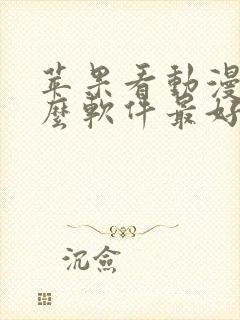 苹果看動漫
麼軟件最好
沉僉